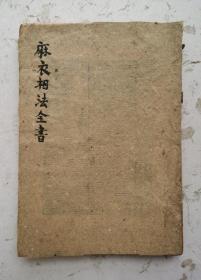 麻衣相法全書